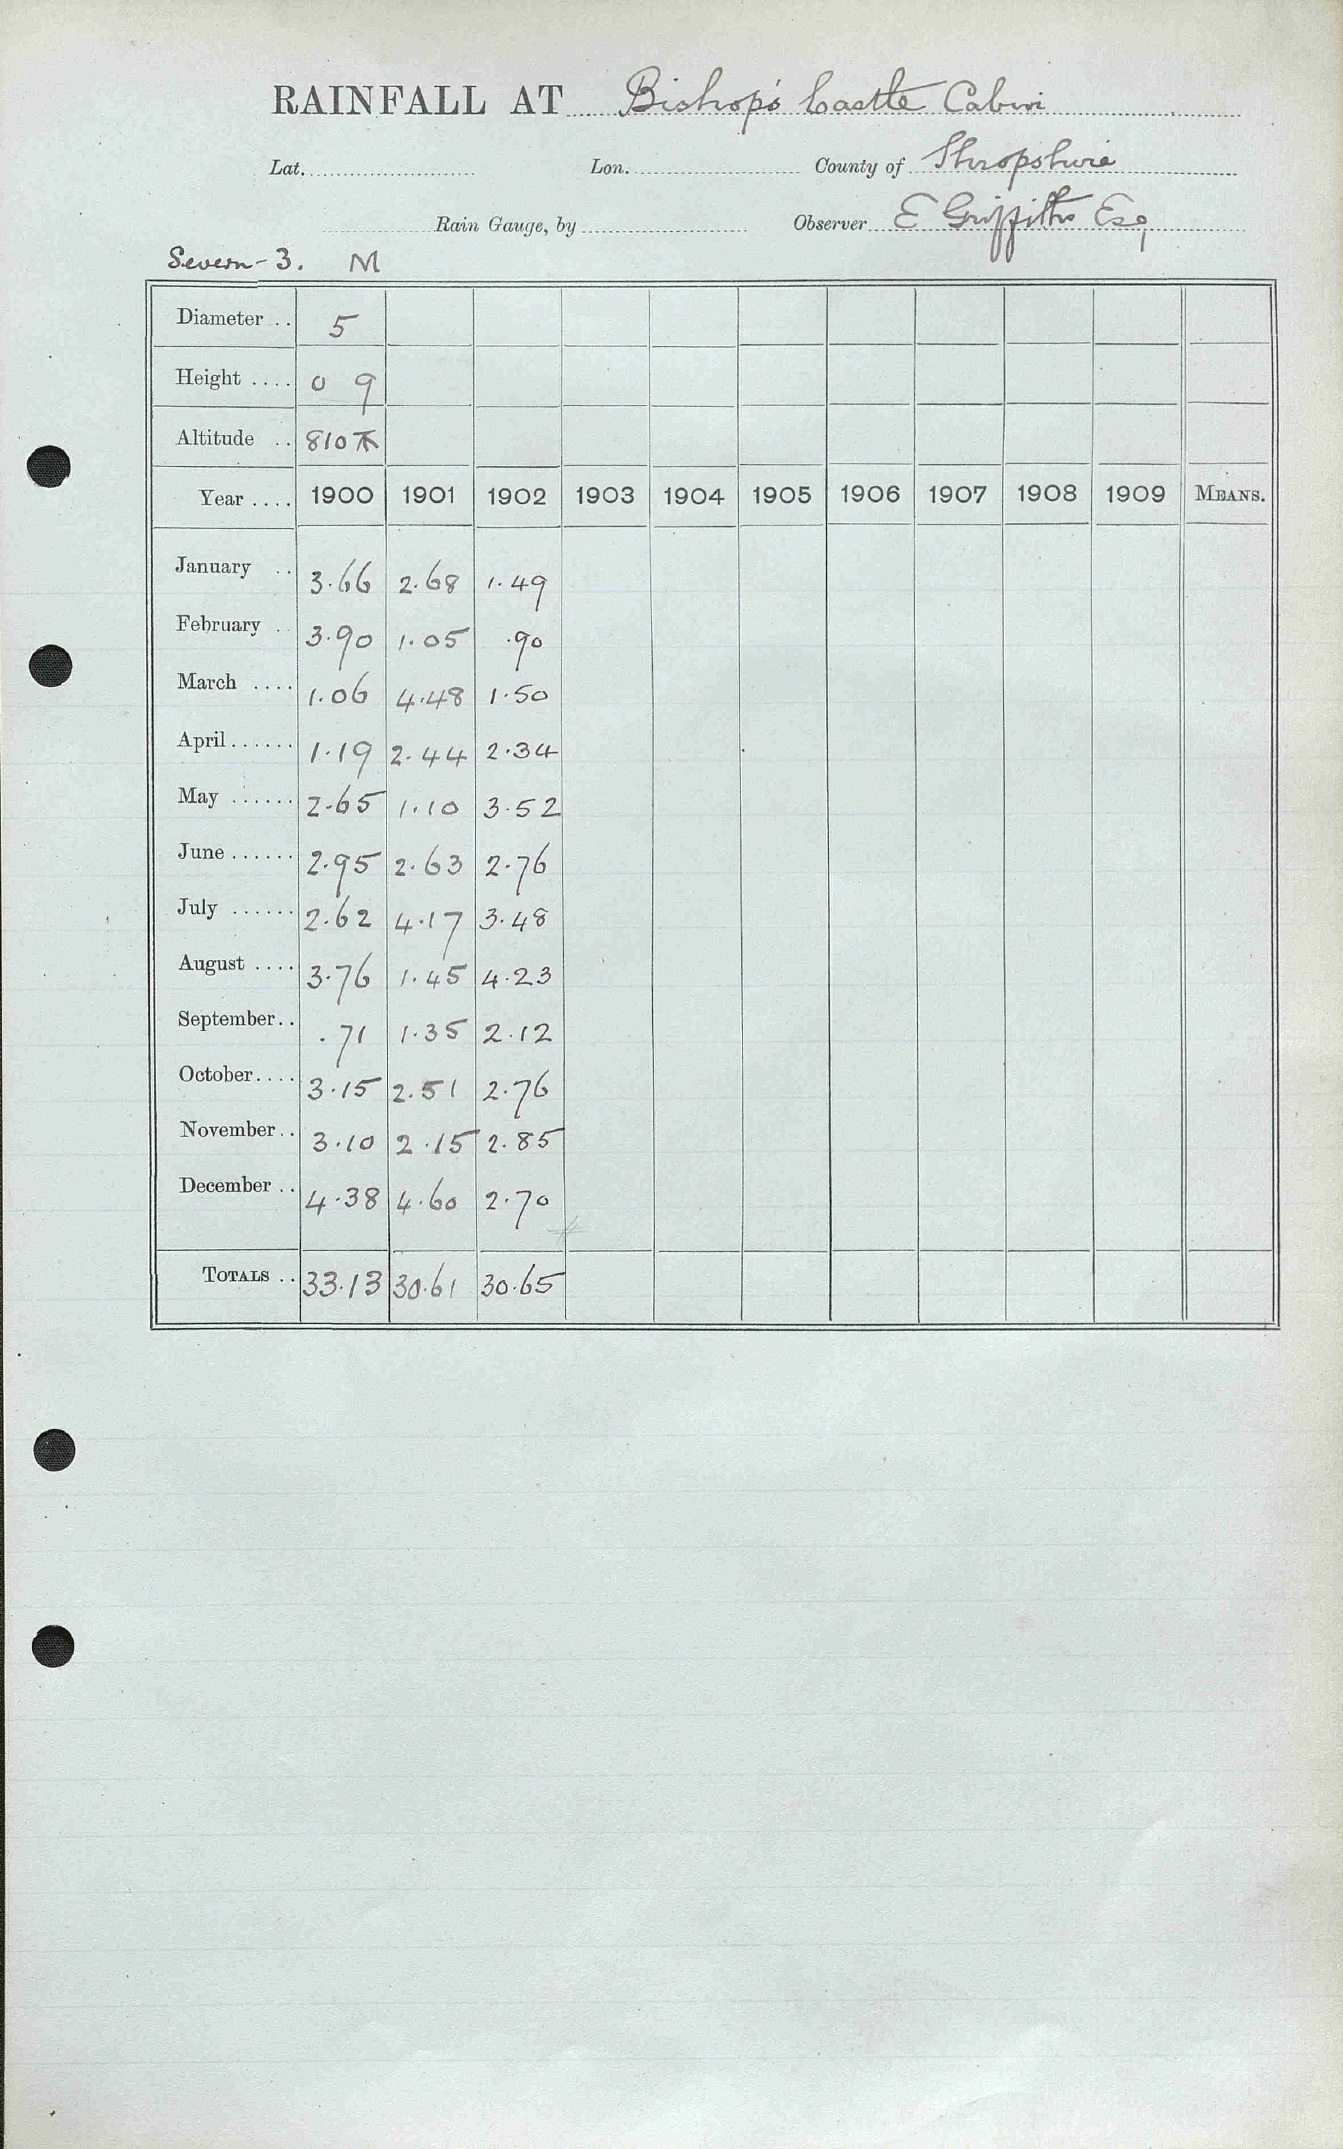 RAINFALL AT Bishop's Castle Cabin
Lat. Lon. County of Shropshire
Rain Gauge, by Observer E Griffiths Esq
Severn - 3. M
Diameter .. 5
Height .... 0 9
Altitude .. 810
Year .... 1900 1901 1902 1903 1904 1905 1906 1907 1908 1909 MEANS.
January .. 3.66 2.68 1.49
February .. 3.90 1.05 .90
March .... 1.06 4.48 1.50
April ...... 1.19 2.44 2.34
May ...... 2.65 1.10 3.52
June ...... 2.95 2.63 2.76
July ...... 2.62 4.17 3.48
August .... 3.76 1.45 4.23
September .. .71 1.35 2.12
October .... 3.15 2.51 2.76
November .. 3.10 2.15 2.85
December .. 4.38 4.60 2.70
TOTALS .. 33.13 30.61 30.65